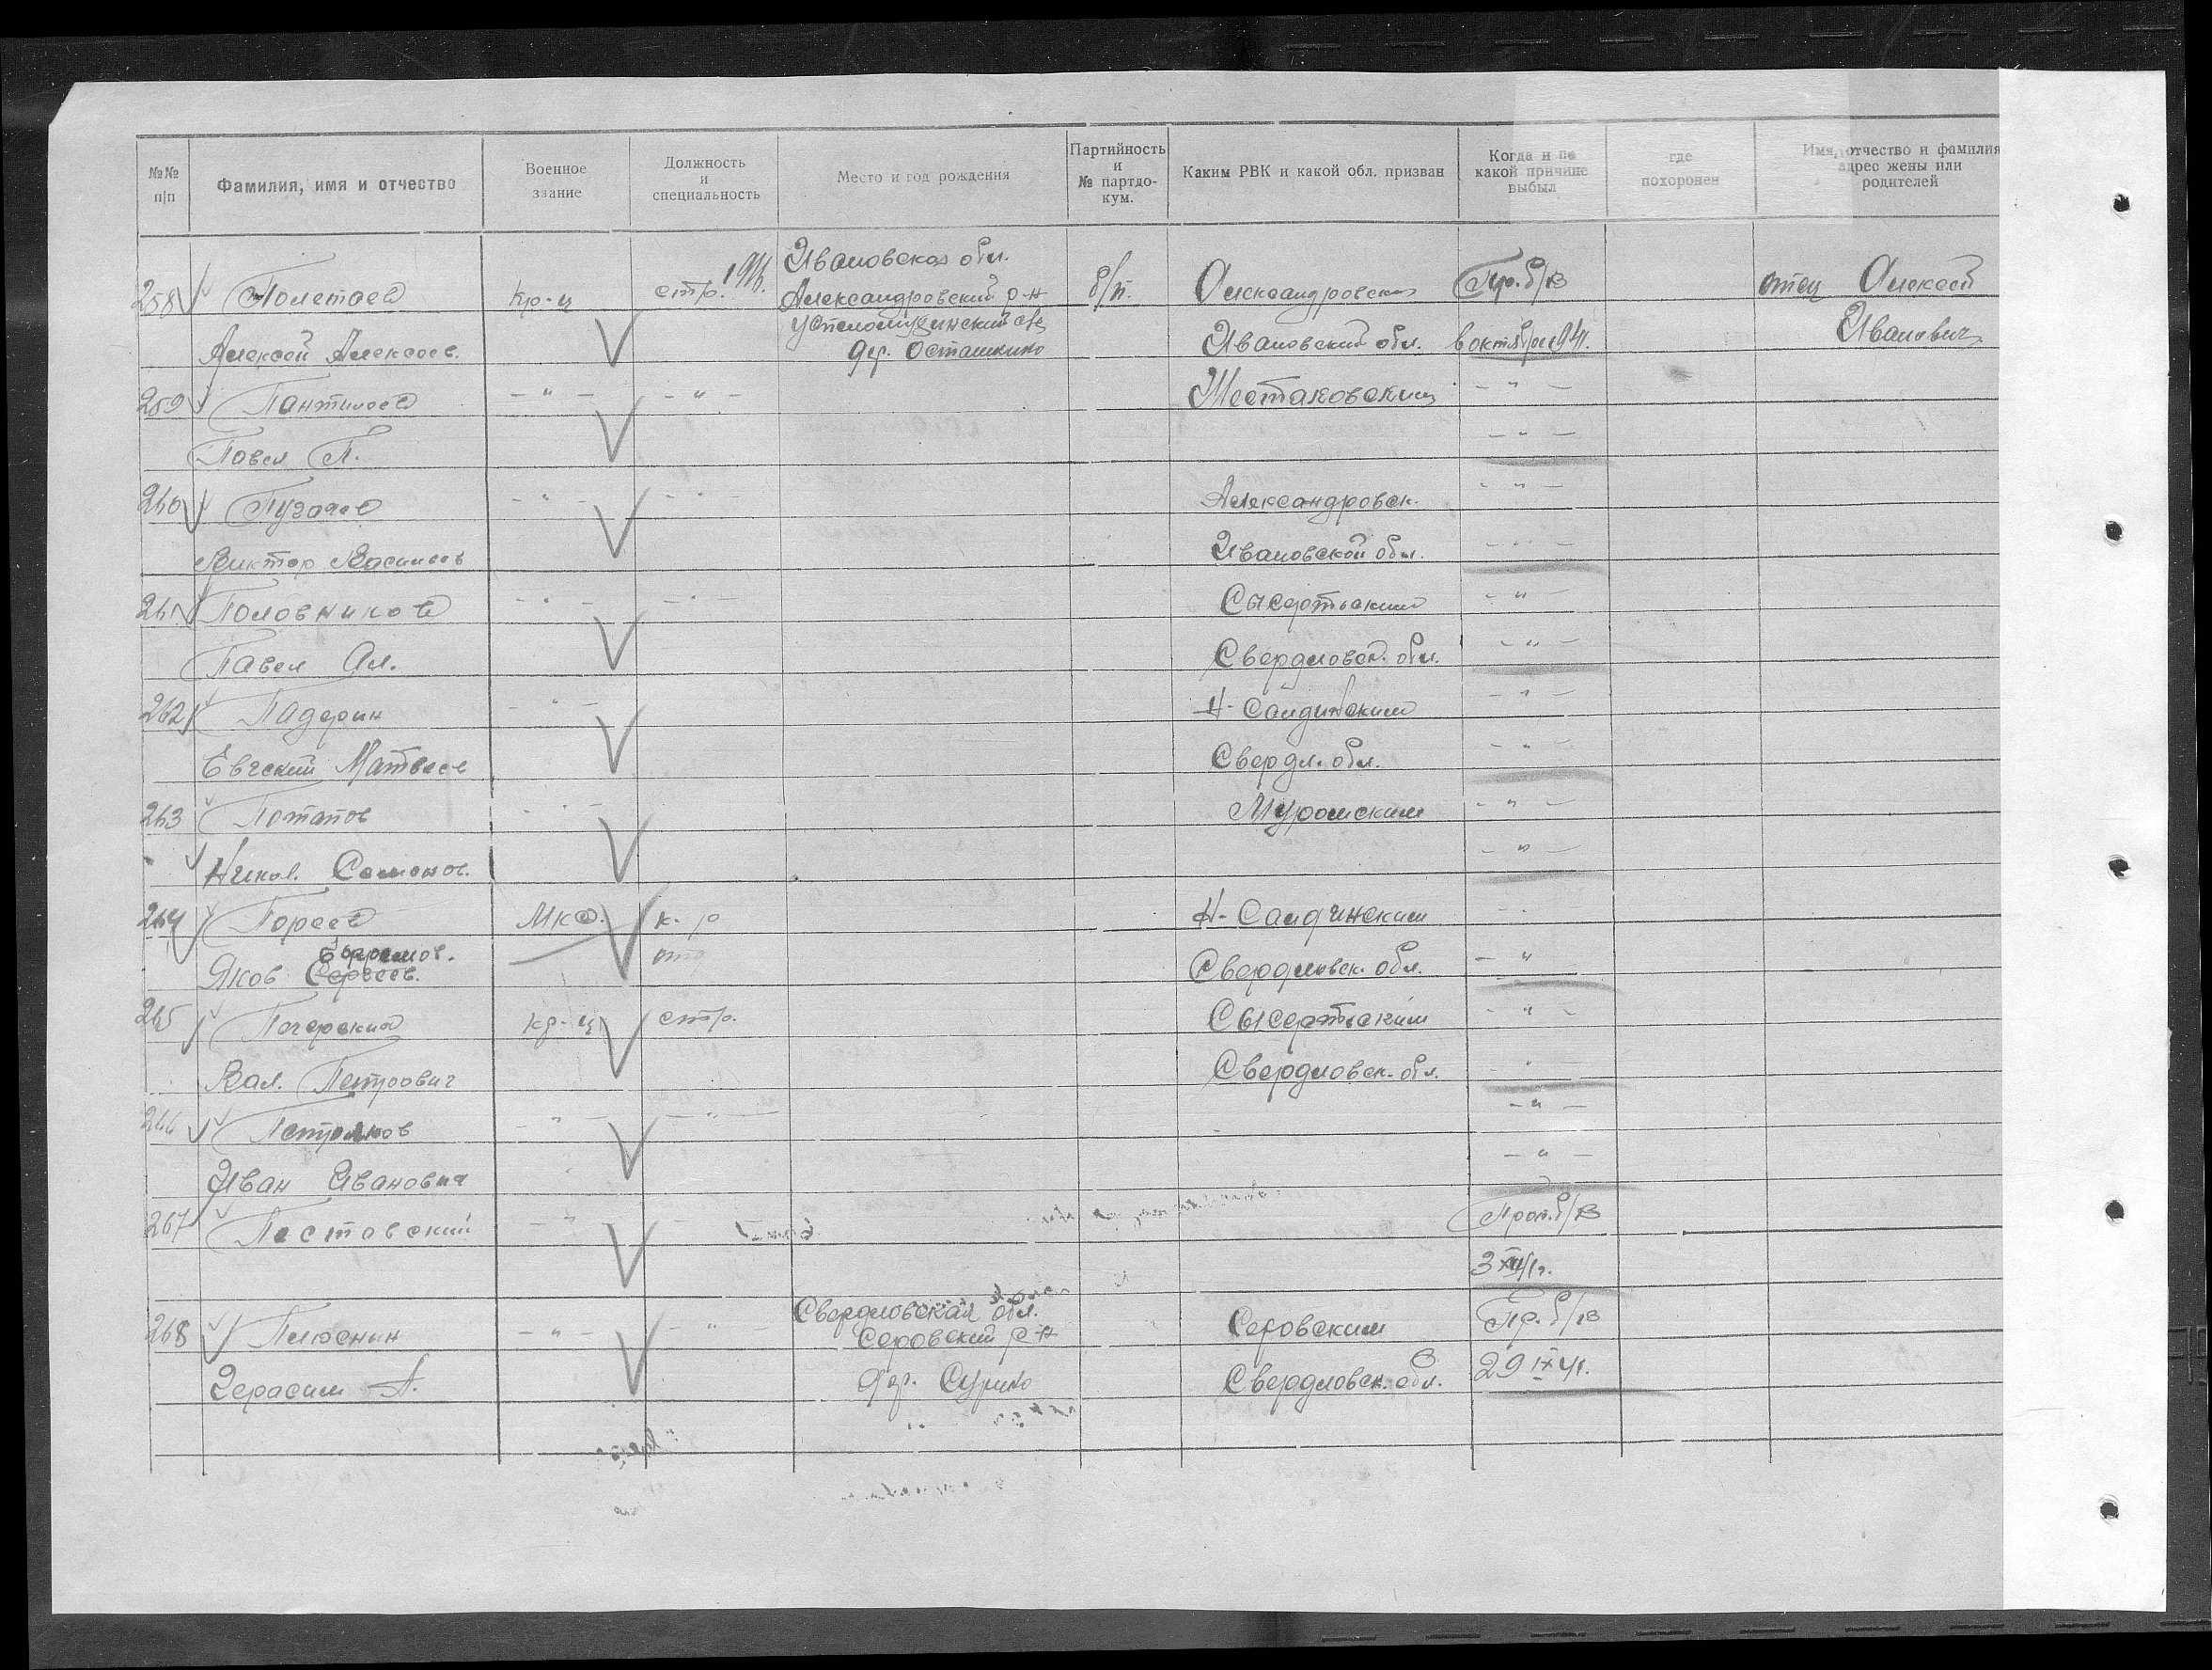 №№ п/п Фамилия, имя и отчество Военное звание Должность и специальность Место и год рождения Партийность и № партдокум. Каким РВК и какой обл. призван Когда и по какой причине выбыл где похоронен Имя, отчество и фамилия адрес жены или родителей
Ивановская обл.
258 Полетаев кр-ц стр. Александровский р-н б/п. Александровским Пр. б/в отец Алексей
Алексей Алексеев. дер. Осташкино Ивановской обл. в октябре 41. Иванович
259 Пантилеев — " — — " — Шестаковским — " —
Павел П. — " —
260 Пугачев — " — — " — Александровск. — " —
Виктор Васильев Ивановской обл. — " —
261 Половников — " — — " — Сысертьским — " —
Павел Ал. Свердловск. обл. — " —
262 Падерин — " — Н-Салдинским — " —
Евгений Матвеев Свердл. обл. — " —
263 Потапов — " — Муромским — " —
Никол. Семенов. — " —
264 МКО. к-р Н-Салдинским — " —
Ефремов.
Яков Сергеев. отд Свердловск. обл. — " —
265 Печерский кр-ц стр. Сысертьским — " —
Вал. Петрович Свердловск. обл. — " —
266 Петряков — " — — " — — " —
Иван Иванович — " —
267 Пестовский — " — Проп. б/в
3 XII 41г.
Свердловская обл.
268 Плюснин — " — — " — Серовский р-н Серовским Пр. б/в
Герасим А. дер. Свердловск. обл. 29 IX 41.